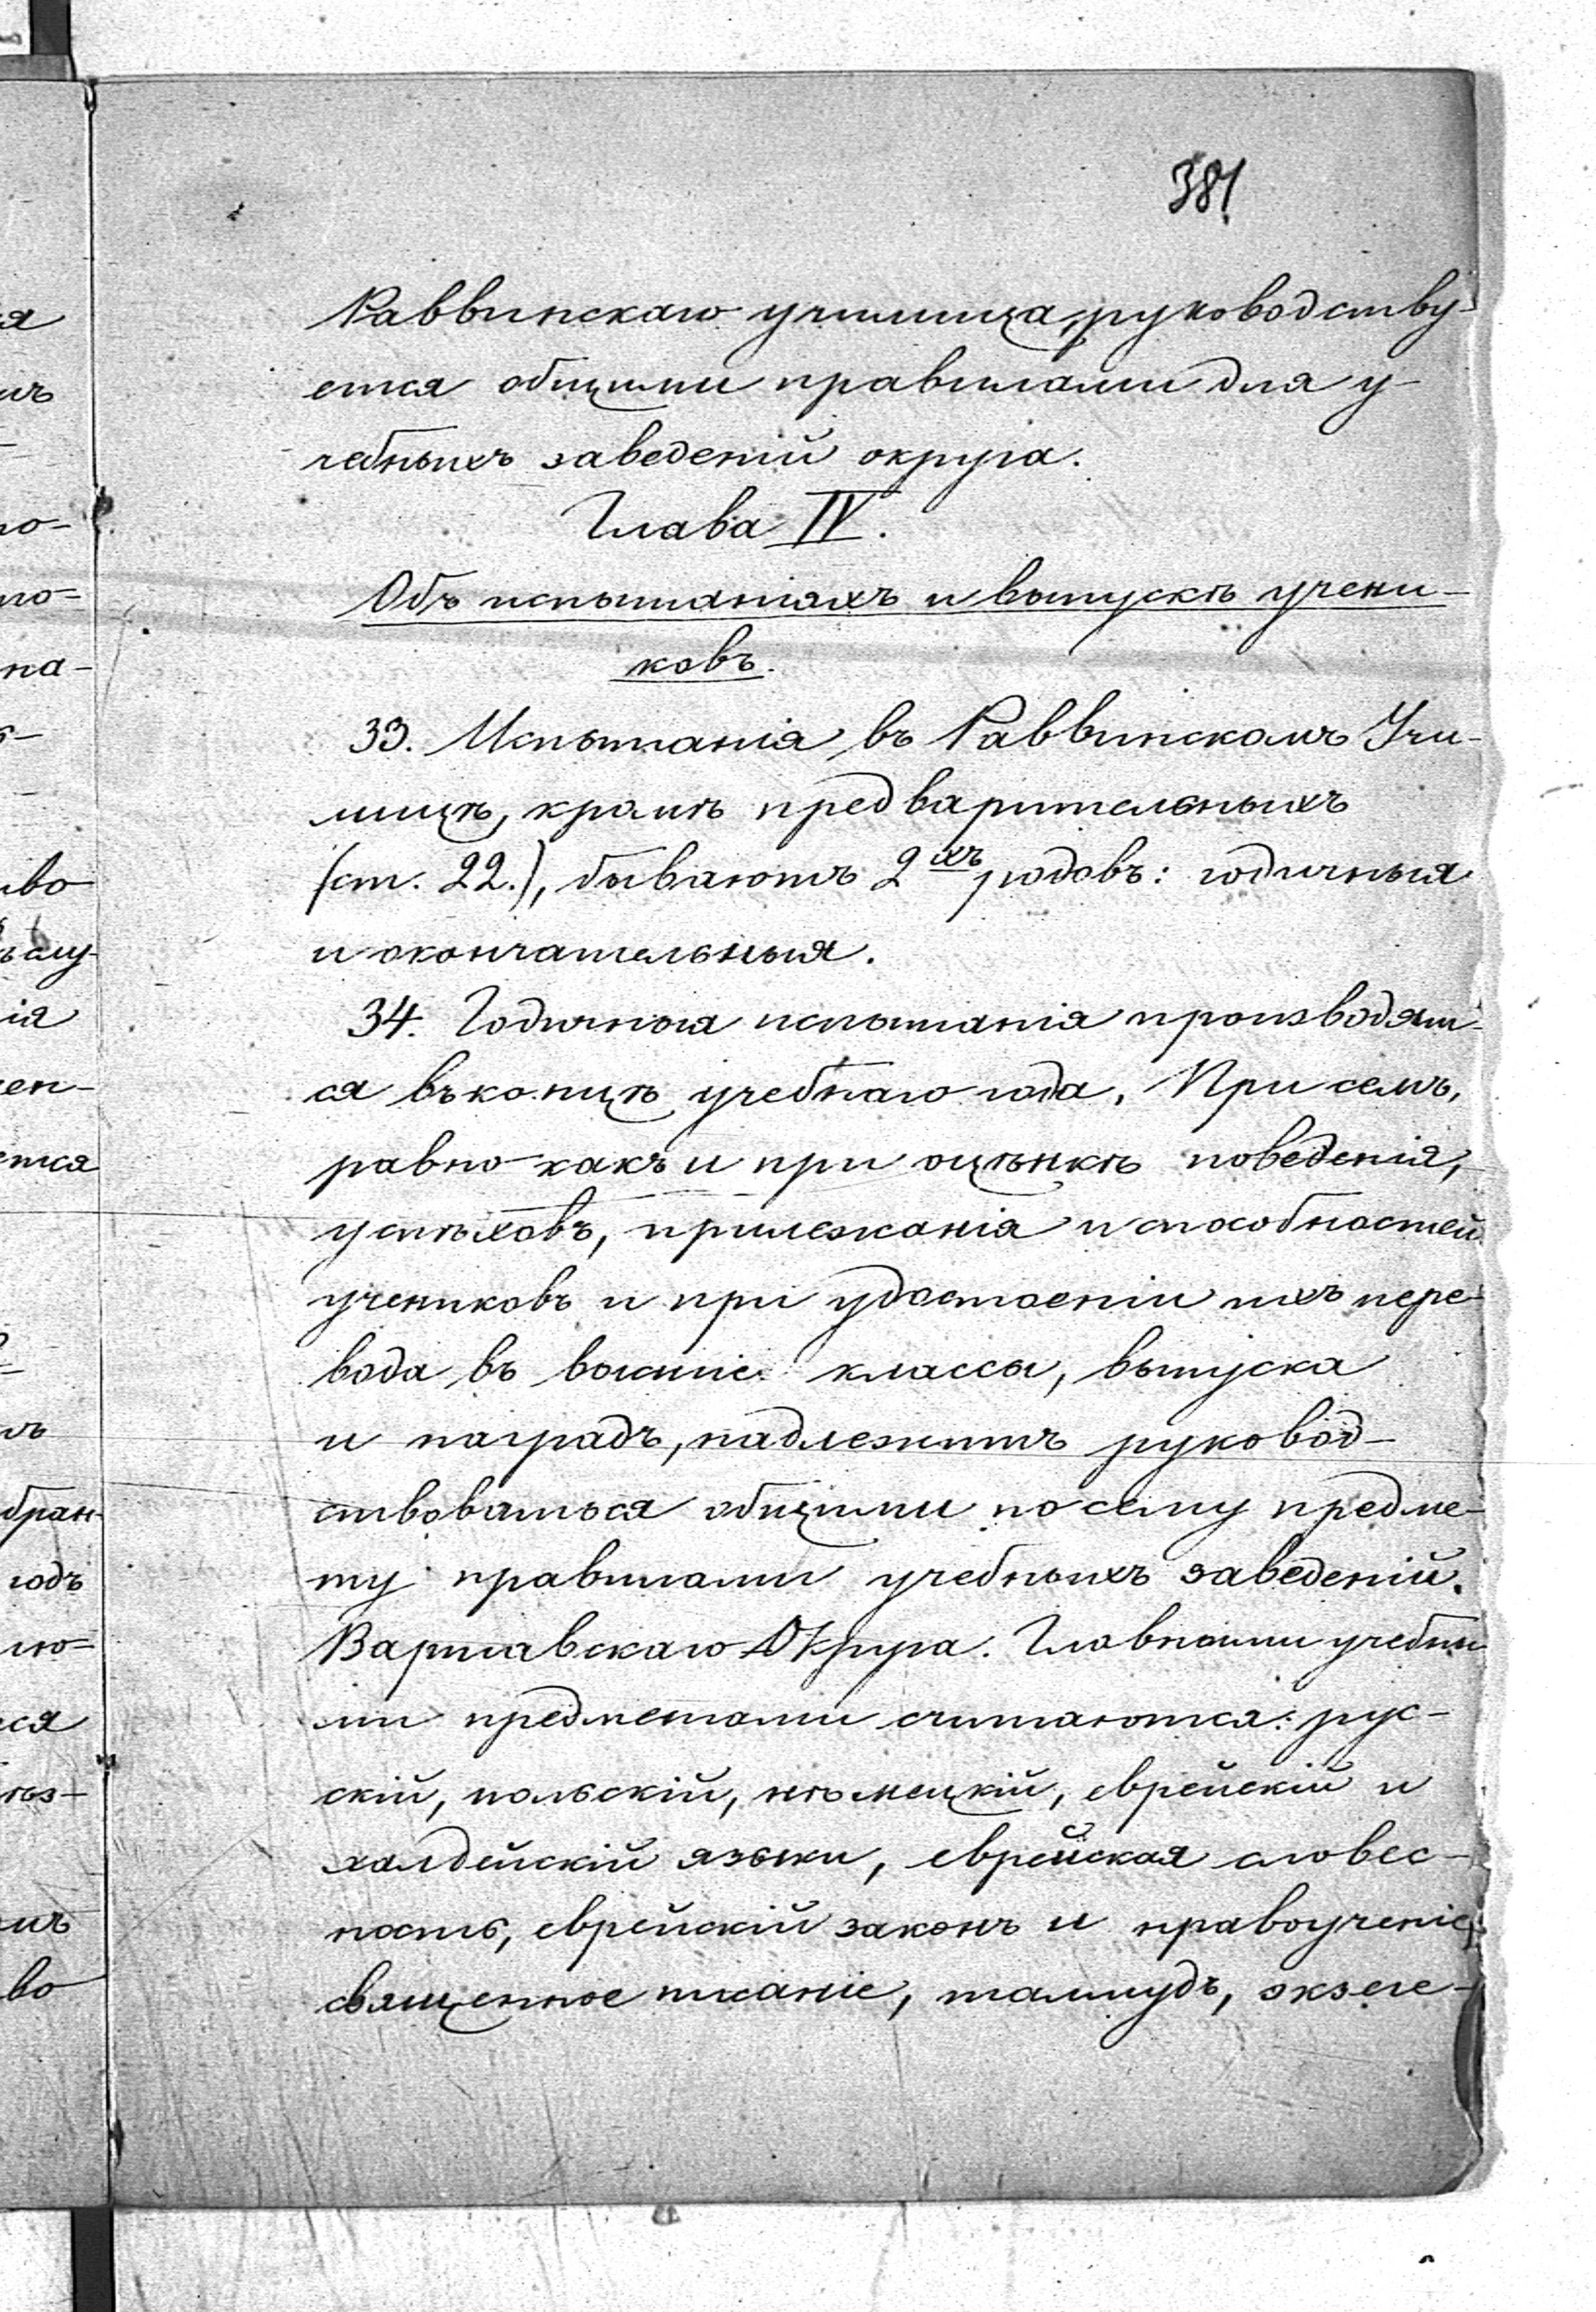 381
Раввинскаго училища, руководству-
ется общими правилами для у-
чебныхъ заведеній округа.
Глава IV.
Объ испытаніяхъ и выпускѣ учени-
ковъ.
33. Испытанія въ Раввинскомъ Учи-
лищѣ, кромѣ предварительныхъ
(ст. 22.), бываютъ 2хъ родовъ: годичныя
и окончательныя.
34. Годичныя испытанія производят-
ся въ концѣ учебнаго года. При семъ,
равно какъ и при оцѣнкѣ поведенія,
успѣховъ, прилежанія и способностей
учениковъ и при удостоеніи ихъ пере-
вода въ высшіе классы, выпуска
и наградъ, надлежитъ руковод-
ствоваться общими по сему предме-
ту правилами учебныхъ заведеній.
Варшавскаго Округа. Главными учебны
ми предметами считаются: рус-
скій, польскій, нѣмецкій, еврейскій и
халдейскій языки, еврейская словес-
ность, еврейскій законъ и нравоученіе,
священное писаніе, талмудъ, экзеге-